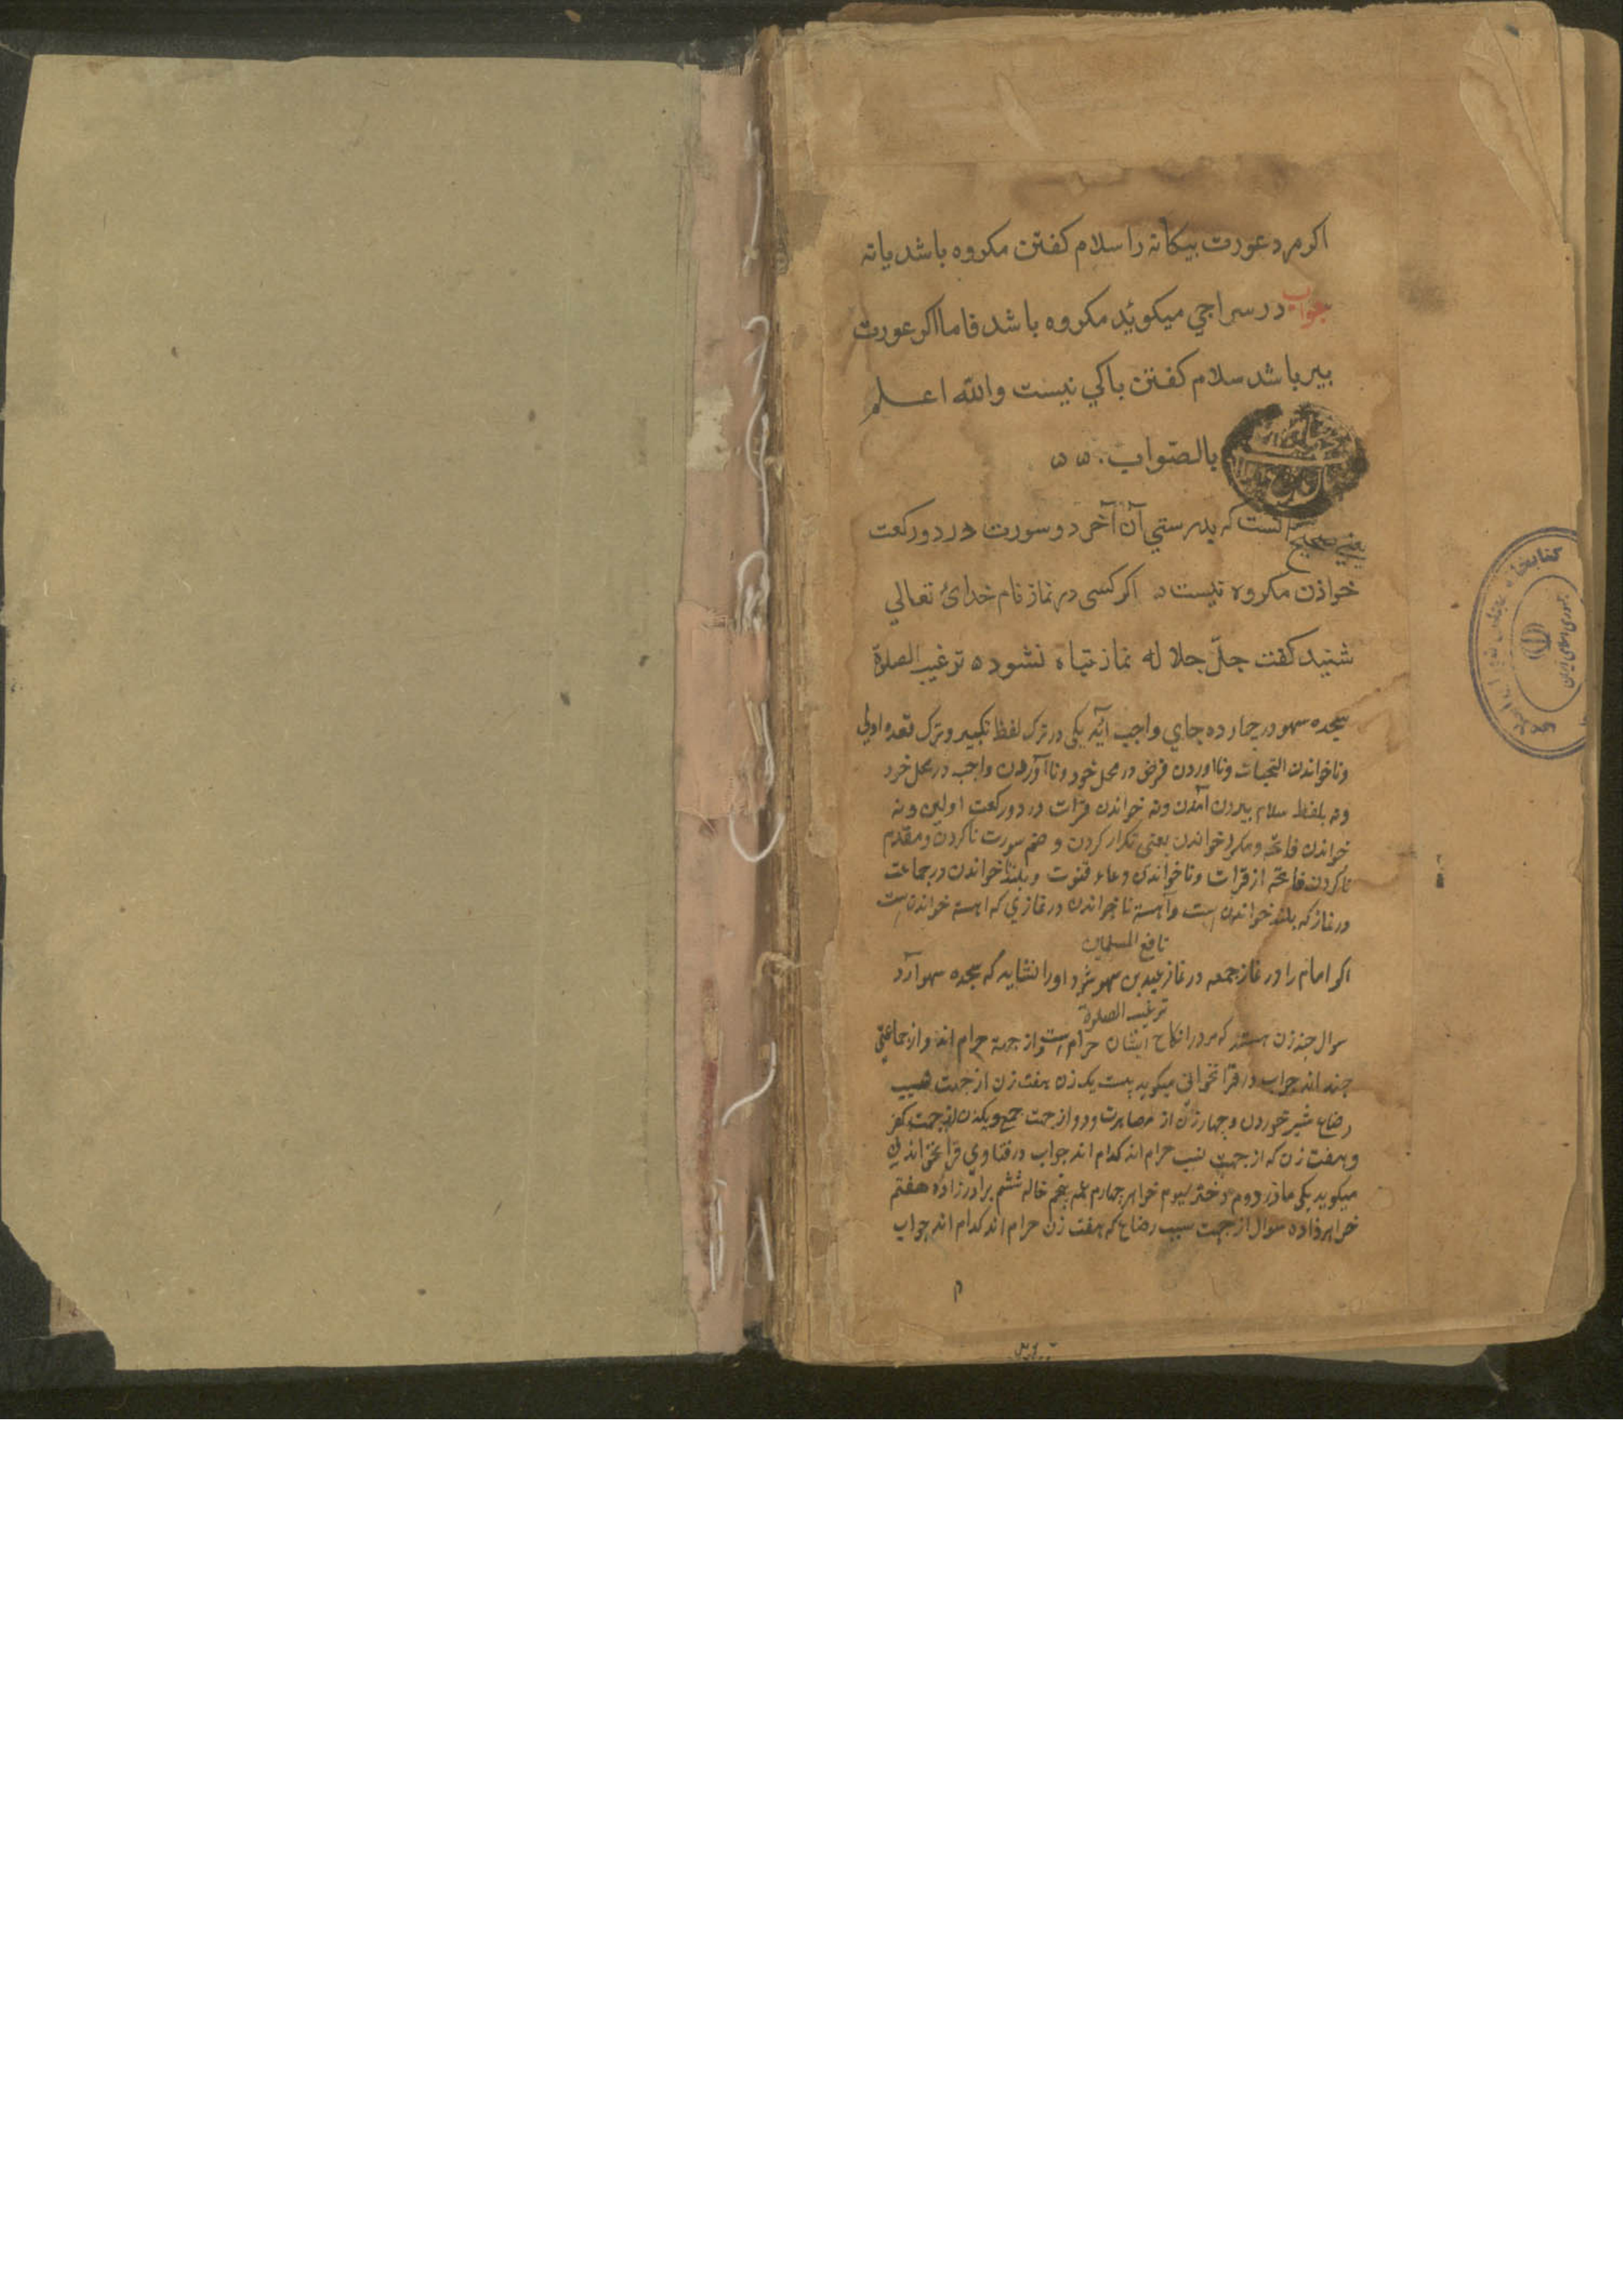 اکر مرد عورت بیکانه را سلام کفتن مکروه باشد یا نه
جواب در سراجي میکوید مکروه باشد فاما اکر عورت
پیر باشد سلام کفتن باکي نیست والله اعلم
بالصواب
یعني صحیح آنست که بدرستي آن آخر دو سورت در دو رکعت
خواندن مکروه نیست اکر کسی در نماز نام خدائ تعالي
شنید کفت جلّ جلاله نماز تباه نشود ترغیب الصلوة
سجده سهو در چهار ده جاي واجب آید یکی در ترک لفظ تکبیر و ترک قعده اولي
و ناخواندن التحیات و نااوردن فرض در محل خود و نا آوردن واجب در محل خود
و نه بلفظ سلام بیرون آمدن و نه خواندن قرات در دو رکعت اولین و نه
خواندن فاتحه و مکرر خواندن یعنی تکرار کردن و ضم سورت ناکردن و مقدم
ناکردن فاتحه از قرات و ناخواندن دعاء قنوت و بلند خواندن در جماعت
در نماز که بلند خواندن است و آهسته ناخواندن در نمازي که اهسته خواندن است
نافع المسلمین
اکر امام را در نماز جمعه در نماز عیدین سهو شود او را نشاید که سجده سهو آرد
ترغیب الصلوة
سوال چند زن هستند که مرد را نکاح ایشان حرام است و از جهة حرام اند و از جماعتي
چند اند جواب در قراخواني میکوید بیست یک زن هفت زن از جهت
رضاع شیر خوردن و چهار زن از مصاهرت و دو از جهت جمع و یکزن از جهت کفر
و هفت زن که از جهت نسب حرام اند کدام اند جواب در فتاوي قراخواني
میکوید یکی مادر دوم دختر سیوم خواهر چهارم عمه پنجم خاله ششم برادرزاده هفتم
خواهرزاده سوال از جهت سبب رضاع که هفت زن حرام اند کدام اند جواب